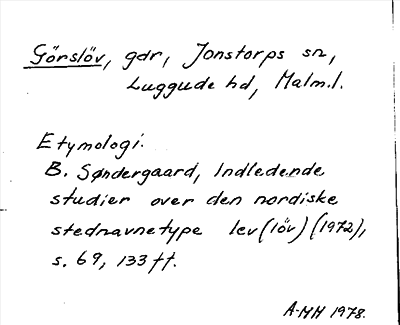 Görslöv, gdr, Jonstorps sn,
Luggude hd, Malm.l.
Etymologi.
B. Søndergaard, Indledende
studier over den nordiske
stednavnetype lev(löv)(1972),
s. 69, 133ff.
A-MH 1978.